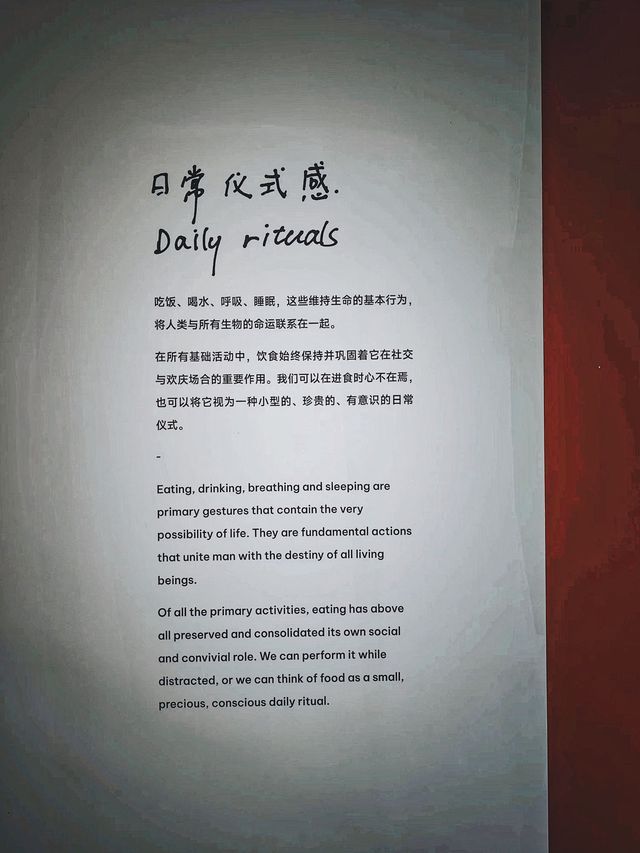 日常仪式感.
Daily rituals
吃饭、喝水、呼吸、睡眠，这些维持生命的基本行为，
将人类与所有生物的命运联系在一起。
在所有基础活动中，饮食始终保持并巩固着它在社交
与欢庆场合的重要作用。我们可以在进食时心不在焉，
也可以将它视为一种小型的、珍贵的、有意识的日常
仪式。
-
Eating, drinking, breathing and sleeping are
primary gestures that contain the very
possibility of life. They are fundamental actions
that unite man with the destiny of all living
beings.
Of all the primary activities, eating has above
all preserved and consolidated its own social
and convivial role. We can perform it while
distracted, or we can think of food as a small,
precious, conscious daily ritual.